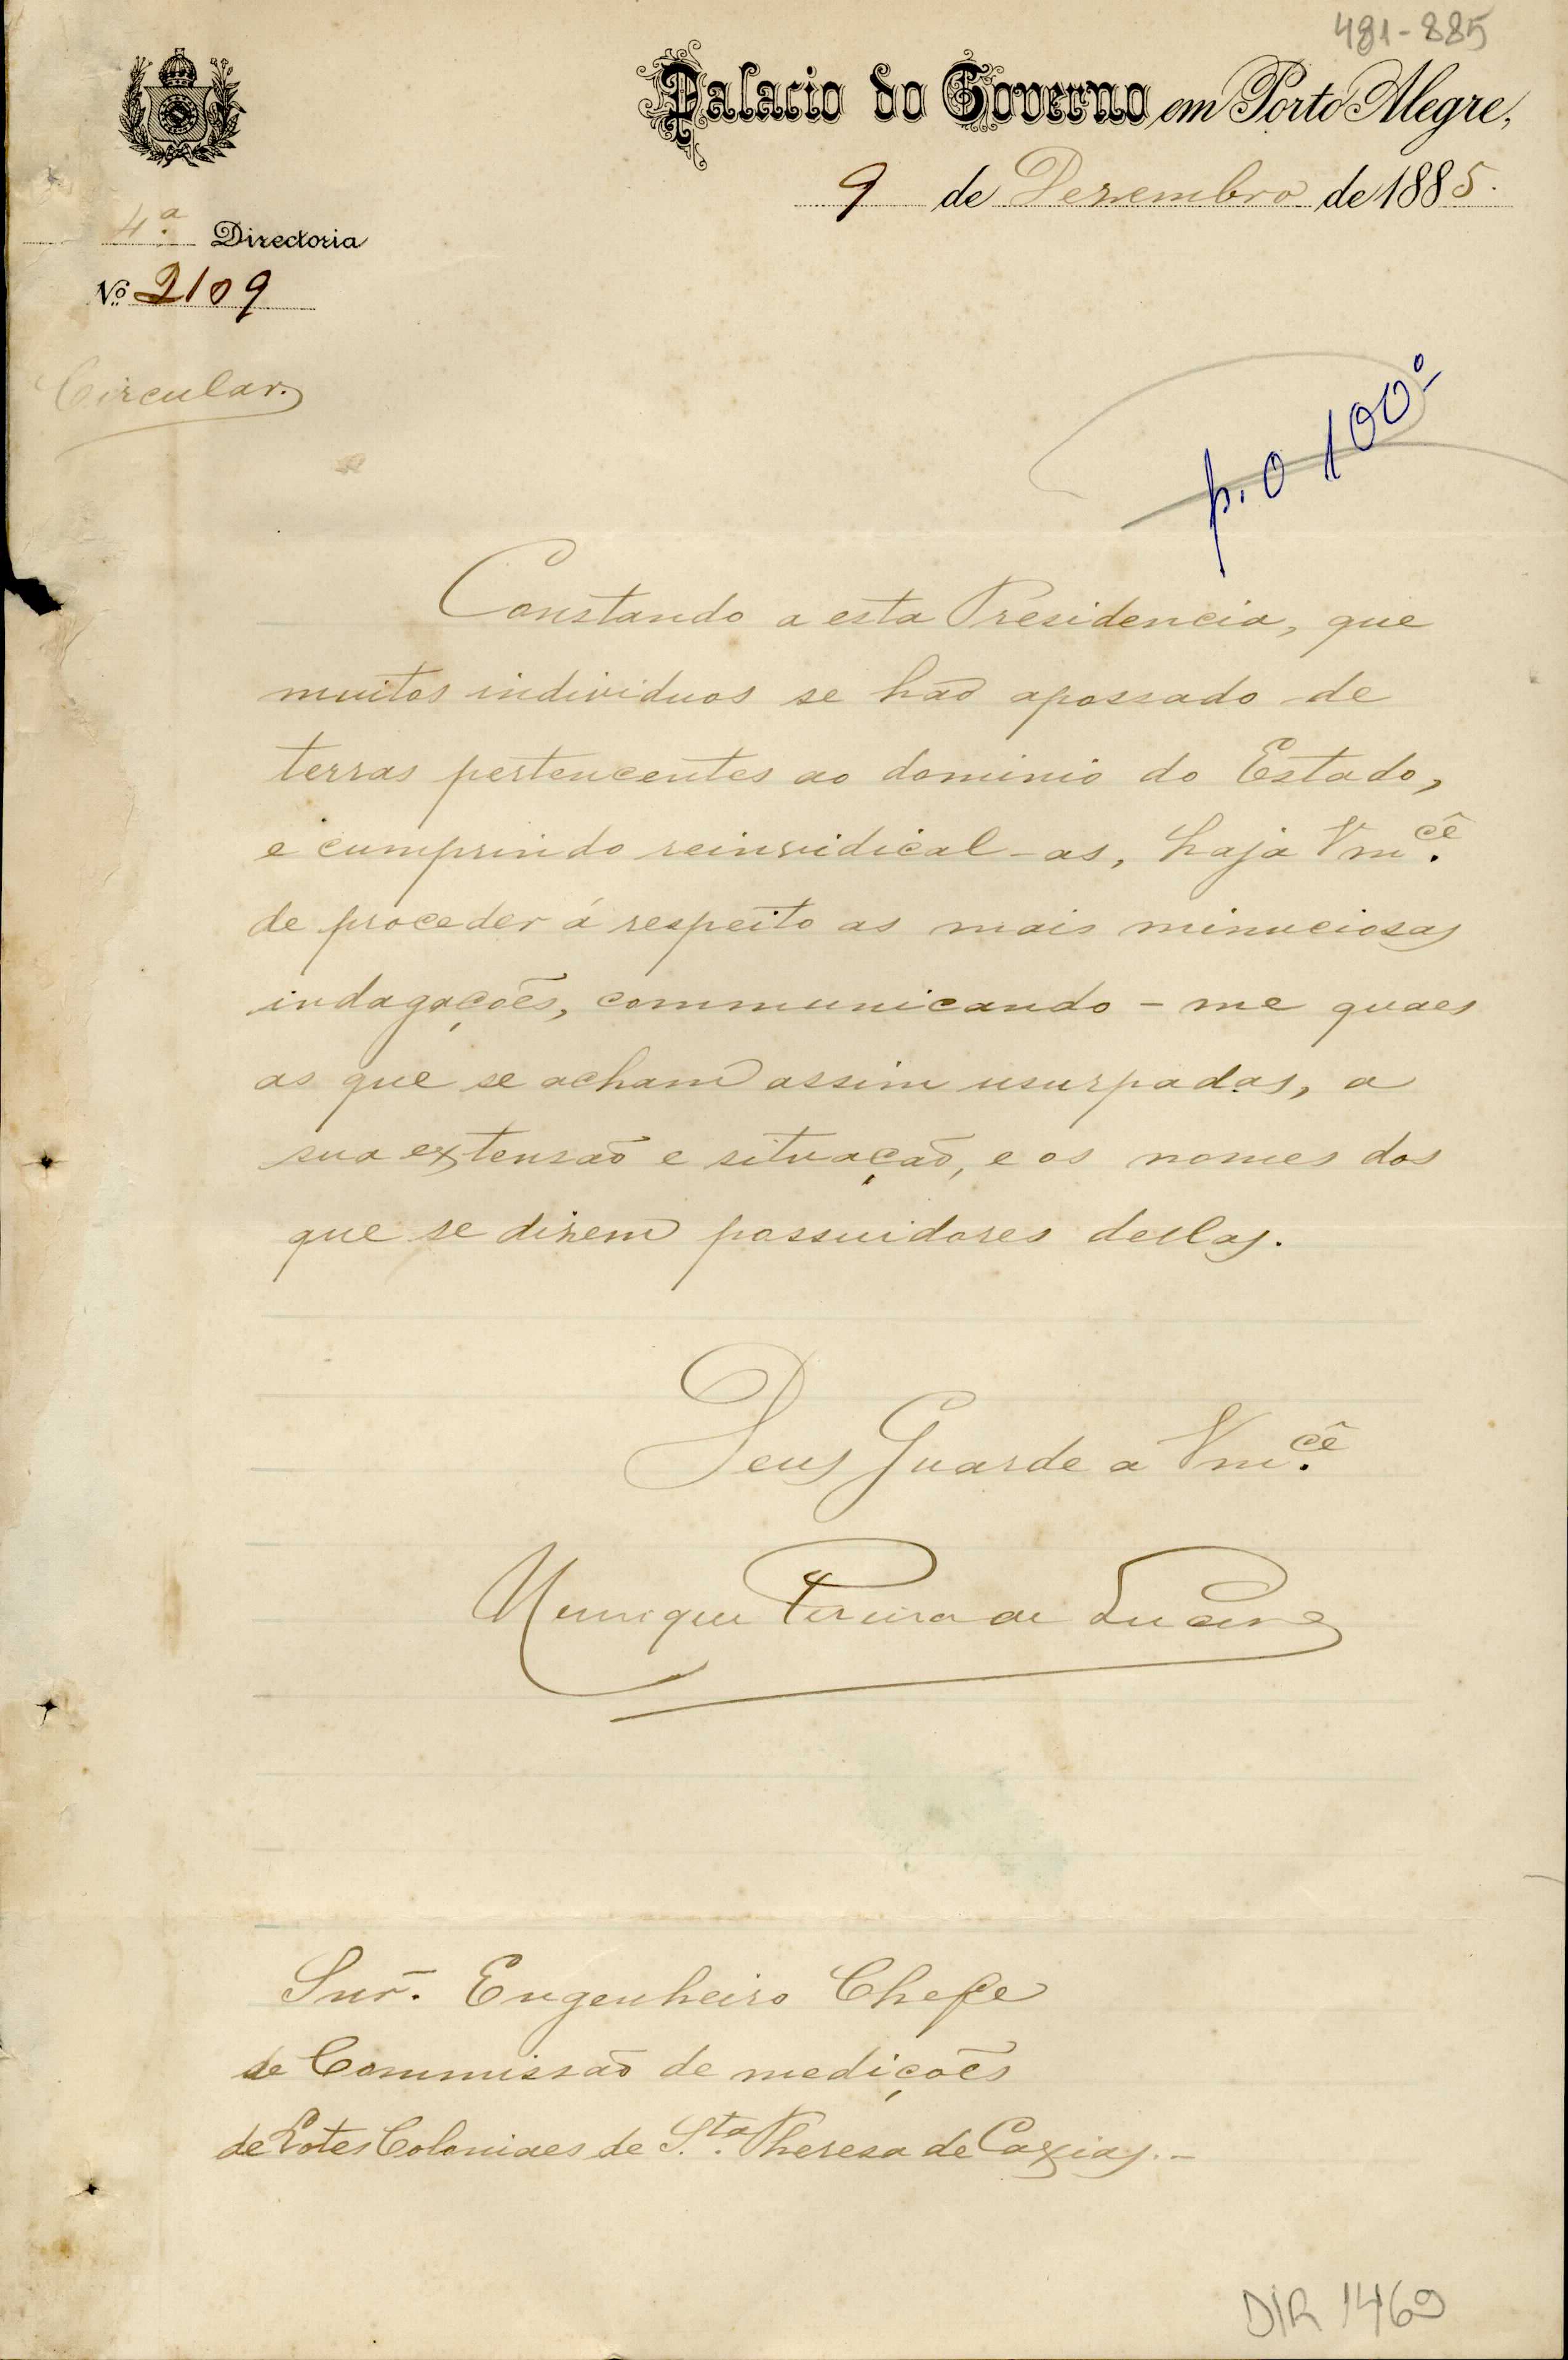 481-885
Palacio do Governo em Porto Alegre,
9 de Dezembro de 1885.
4.ª Directoria
Nº 2109
Circular.
p. o 100º
Constando a esta Presidencia, que
muitos individuos se hão apossado de
terras pertencentes ao dominio do Estado,
e cumprindo reinvidical-as, haja Vm.cê
de proceder á respeito as mais minuciosas
indagações, communicando-me quaes
as que se acham assim usurpadas, a
sua extensão e situação, e os nomes dos
que se dizem possuidores dellas.
Deus Guarde a Vm.cê
Henrique Pereira de Lucena
Snr. Engenheiro Chefe
de Commissão de medições
de Lotes Coloniaes de S.ta Theresa de Caxias.-
DIR 1469